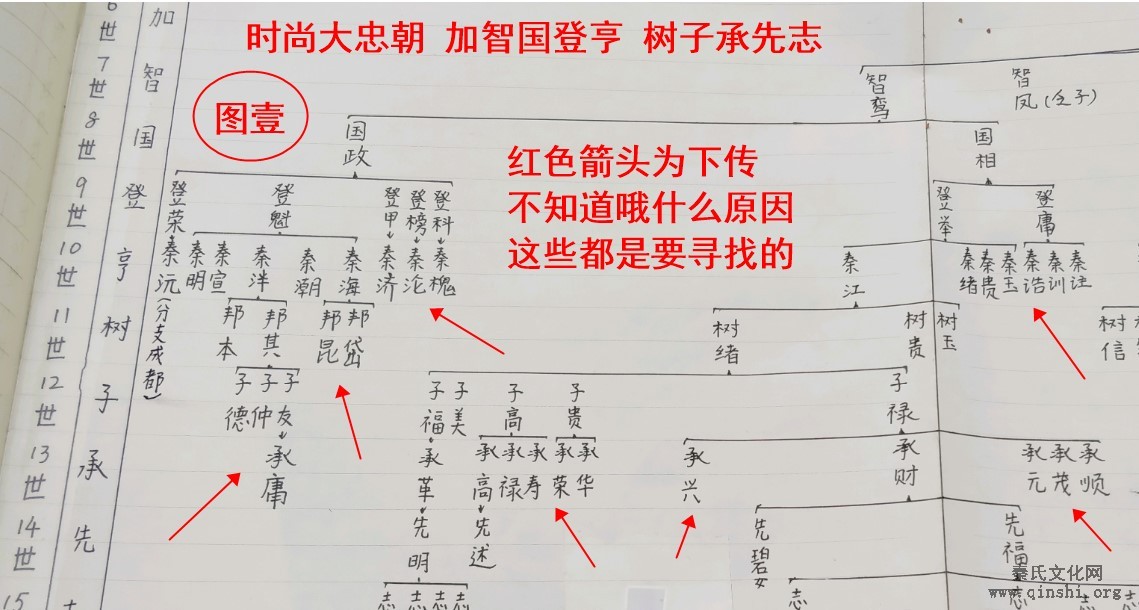 时尚大忠朝 加智国登亨 树子承先志
图壹
红色箭头为下传
不知道哦什么原因
这些都是要寻找的
世 加
7世 智
8世 国
9世 登
10世 亨
11世 树
12世 子
13世 承
14世 先
15
智鸾 智凤(乏子)
国政 国相
登荣 登魁 登甲 登榜 登科 登举 登庸
秦沅 秦明 秦宣 秦泮 秦潮 秦海 秦济 秦沱 秦槐 秦江 秦绪 秦贵 秦玉 秦浩 秦训 秦注
(分支成都)
邦本 邦其 邦昆 邦岱 树绪 树贵 树玉 树信
子德 子仲 子友 子福 子美 子高 子贵 子禄
承庸 承革 承高 承禄 承寿 承荣 承华 承兴 承财 承元 承茂 承顺
先明 先述 先碧女 先福
志 志 志 志 志 志
秦氏文化网
www.qinshi.org